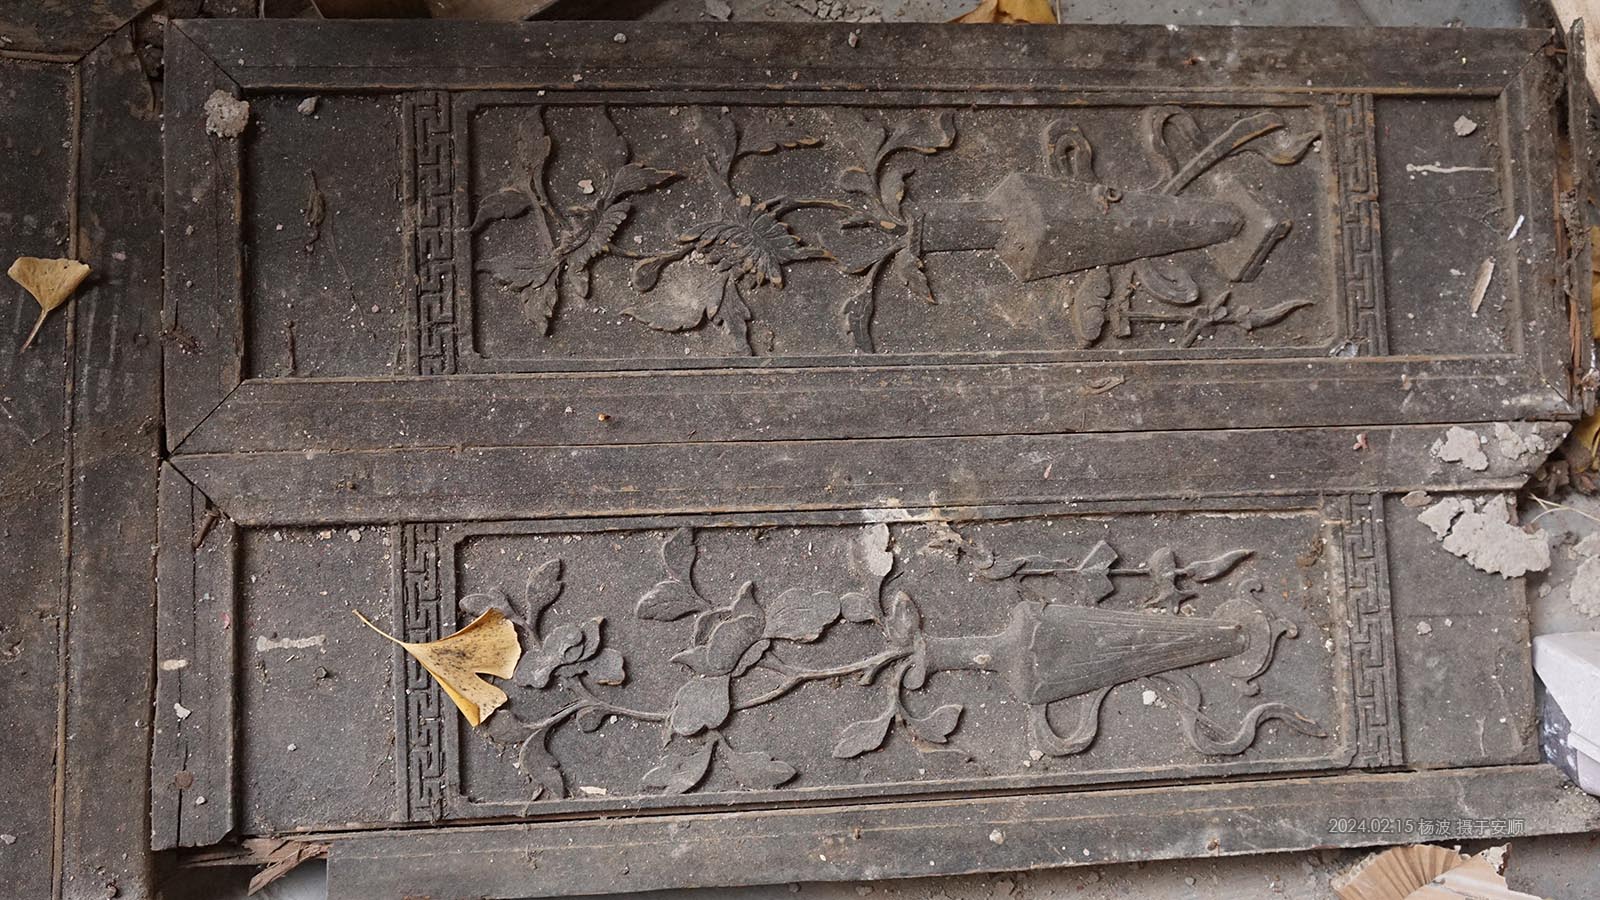 2024.02.15 杨波 摄于安顺